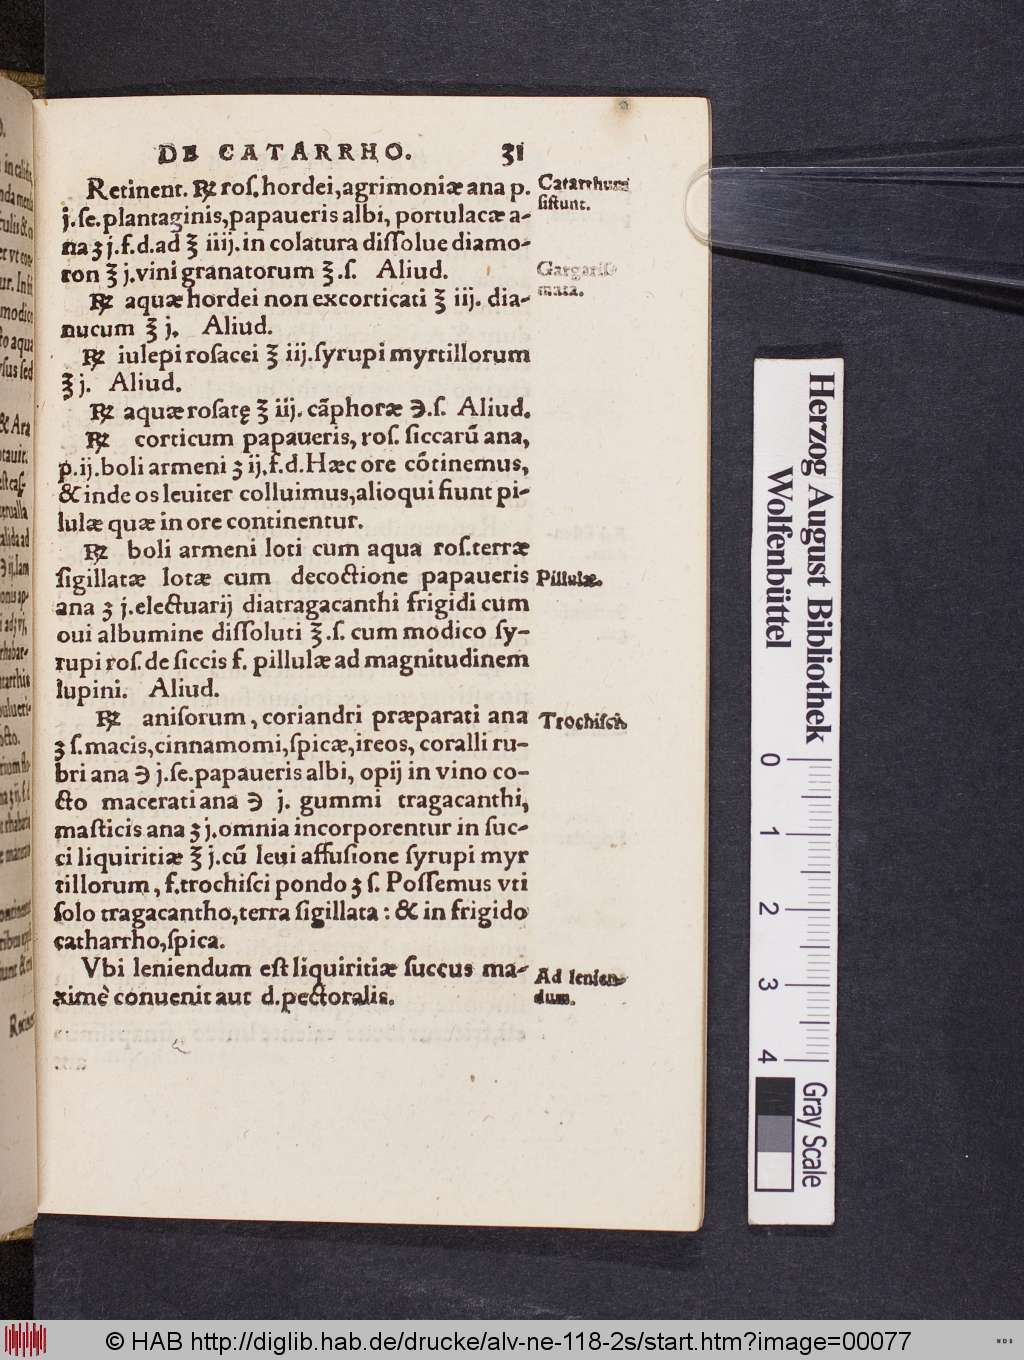 DE CATARRHO. 31
Retinent. ℞ roſ. hordei, agrimoniæ ana p.
j. ſe. plantaginis, papaueris albi, portulacæ a-
na ʒ j. f. d. ad ℥ iiij. in colatura diſſolue diamo-
ron ℥ j. vini granatorum ℥. ſ. Aliud.
℞ aquæ hordei non excorticati ℥ iij. dia-
nucum ℥ j. Aliud.
℞ iulepi roſacei ℥ iij. ſyrupi myrtillorum
℥ j. Aliud.
℞ aquæ roſatę ℥ iij. cãphoræ ℈. ſ. Aliud.
℞ corticum papaueris, roſ. ſiccarũ ana,
p. ij. boli armeni ʒ ij. f. d. Hæc ore cõtinemus,
& inde os leuiter colluimus, alioqui fiunt pi-
lulæ quæ in ore continentur.
℞ boli armeni loti cum aqua roſ. terræ
ſigillatæ lotæ cum decoctione papaueris
ana ʒ j. electuarij diatragacanthi frigidi cum
oui albumine diſſoluti ℥. ſ. cum modico ſy-
rupi roſ. de ſiccis f. pillulæ ad magnitudinem
lupini. Aliud.
℞ aniſorum, coriandri præparati ana
ʒ ſ. macis, cinnamomi, ſpicæ, ireos, coralli ru-
bri ana ℈ j. ſe. papaueris albi, opij in vino co-
cto macerati ana ℈ j. gummi tragacanthi,
maſticis ana ʒ j. omnia incorporentur in ſuc-
ci liquiritiæ ℥ j. cũ leui affuſione ſyrupi myr
tillorum, f. trochiſci pondo ʒ ſ. Poſſemus vti
ſolo tragacantho, terra ſigillata: & in frigido
catharrho, ſpica.
Vbi leniendum eſt liquiritiæ ſuccus ma-
ximè conuenit aut d. pectoralis.
Catarrhum
ſiſtunt.
Gargariſ-
mata.
Pillulæ.
Trochiſci.
Ad lenien-
dum.
Herzog August Bibliothek
Wolfenbüttel
0 1 2 3 4
Gray Scale
© HAB http://diglib.hab.de/drucke/alv-ne-118-2s/start.htm?image=00077